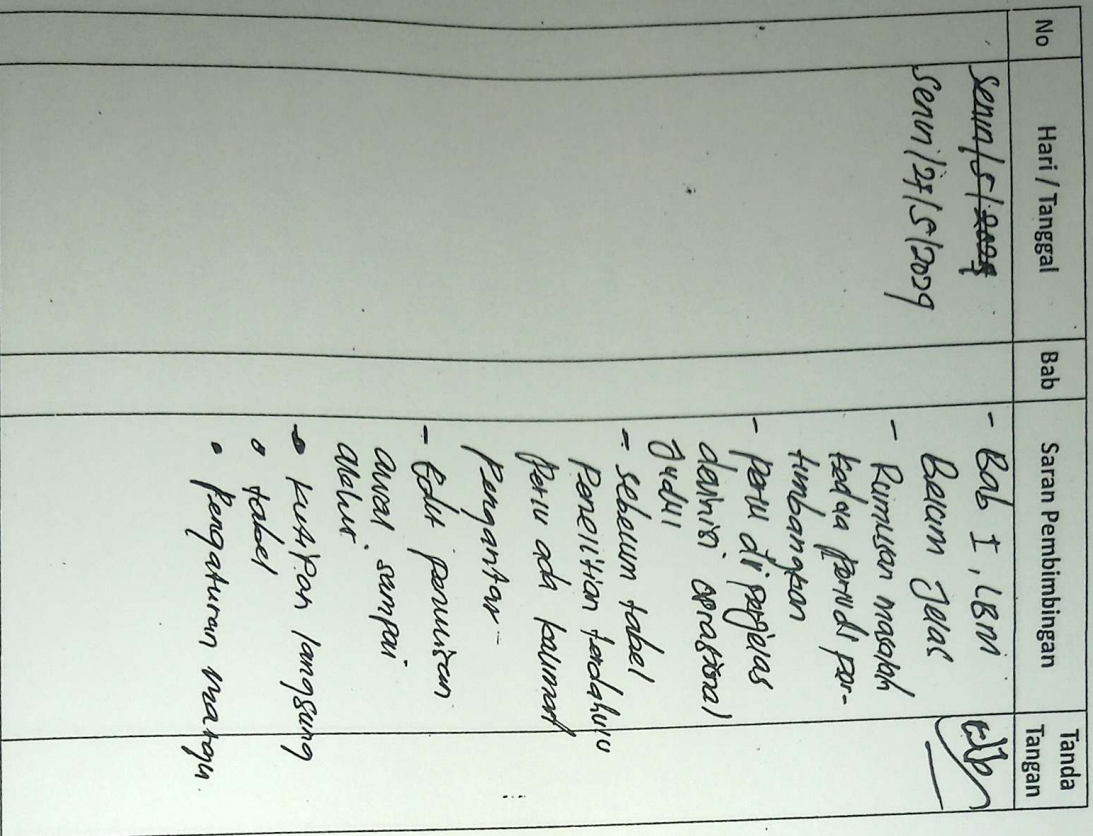 No Hari / Tanggal Bab Saran Pembimbingan Tanda Tangan
Senin/5/2024
Senin/27/5/2024
- Bab I, LBM
Belum Jelas
- Rumusan masalah
kedua perlu di per-
timbangkan
- perlu di perjelas
definisi oprasional
Judul
- sebelum tabel
Penelitian terdahulu
perlu ada kalimat
Pengantar-
- Edit penulisan
awal sampai
akhir
• kutipan langsung
• tabel
• Pengaturan margin.